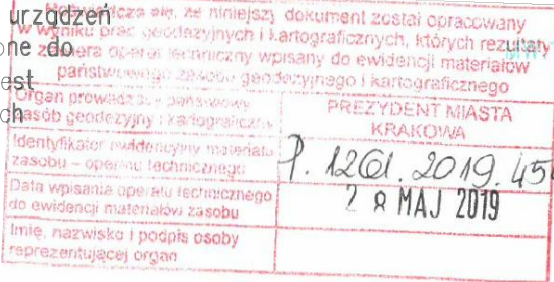 urządzeń
one do
est
ch
się, że niniejszy dokument został opracowany
w wyniku prac geodezyjnych i kartograficznych, których rezultaty
zawiera operat techniczny wpisany do ewidencji materiałów
państwowego zasobu geodezyjnego i kartograficznego
Organ prowadzący państwowy
zasób geodezyjny i kartograficzny
PREZYDENT MIASTA
KRAKOWA
Identyfikator ewidencyjny materiału
zasobu – operatu technicznego
P. 1261. 2019. 45
Data wpisania operatu technicznego
do ewidencji materiałów zasobu
2 8 MAJ 2019
Imię, nazwisko i podpis osoby
reprezentującej organ